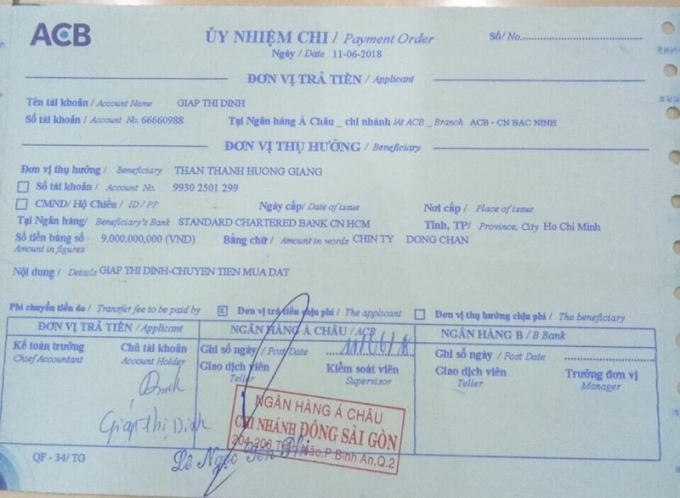 ACB
ỦY NHIỆM CHI / Payment Order
Số/ No.
Ngày / Date 11-06-2018
ĐƠN VỊ TRẢ TIỀN / Applicant
Tên tài khoản / Account Name GIAP THI DINH
Số tài khoản / Account No. 66660988 Tại Ngân hàng Á Châu _ chi nhánh /At ACB _ Branch ACB - CN BAC NINH
ĐƠN VỊ THỤ HƯỞNG / Beneficiary
Đơn vị thụ hưởng / Beneficiary THAN THANH HUONG GIANG
Số tài khoản / Account No. 9930 2501 299
CMND/ Hộ Chiếu / ID / PP Ngày cấp/ Date of issue Nơi cấp / Place of issue
Tại Ngân hàng/ Beneficiary's Bank STANDARD CHARTERED BANK CN HCM Tỉnh, TP/ Province, City Ho Chi Minh
Số tiền bằng số 9,000,000,000 (VND) Bằng chữ / Amount in words CHIN TY DONG CHAN
Amount in figures
Nội dung / Details GIAP THI DINH-CHUYEN TIEN MUA DAT
Phí chuyển tiền do / Transfer fee to be paid by Đơn vị trả tiền chịu phí / The applicant Đơn vị thụ hưởng chịu phí / The beneficiary
ĐƠN VỊ TRẢ TIỀN / Applicant NGÂN HÀNG Á CHÂU / ACB NGÂN HÀNG B / B Bank
Kế toán trưởng Chủ tài khoản Ghi sổ ngày / Post Date 11/6/18 Ghi sổ ngày / Post Date
Chief Accountant Account Holder Giao dịch viên Kiểm soát viên Giao dịch viên Trưởng đơn vị
Teller Supervisor Teller Manager
Giáp Thị Dinh
NGÂN HÀNG Á CHÂU
CHI NHÁNH ĐÔNG SÀI GÒN
204-206 Trần Não, P.Bình An, Q.2
Lê Ngọc
QF - 34/ TG